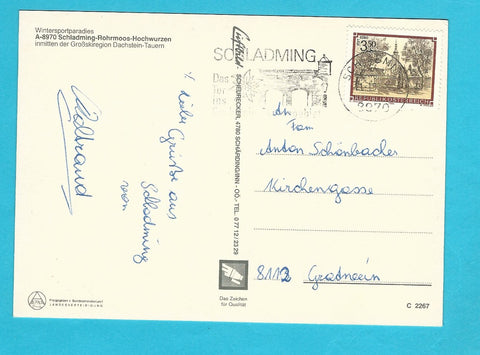 Wintersportparadies
A-8970 Schladming-Rohrmoos-Hochwurzen
inmitten der Großskiregion Dachstein-Tauern
Luftbild
SCHEUERECKER, 4780 SCHÄRDING/INN - OÖ. - TEL. 0 77 12 / 23 29
SCHLADMING
Das
3.50
REPUBLIK ÖSTERREICH
8970
liebe Grüße aus
Schladming
von
An
Fam
Anton Schönbacher
Kirchengasse
8112 Gratwein
Das Zeichen
für Qualität
C 2267